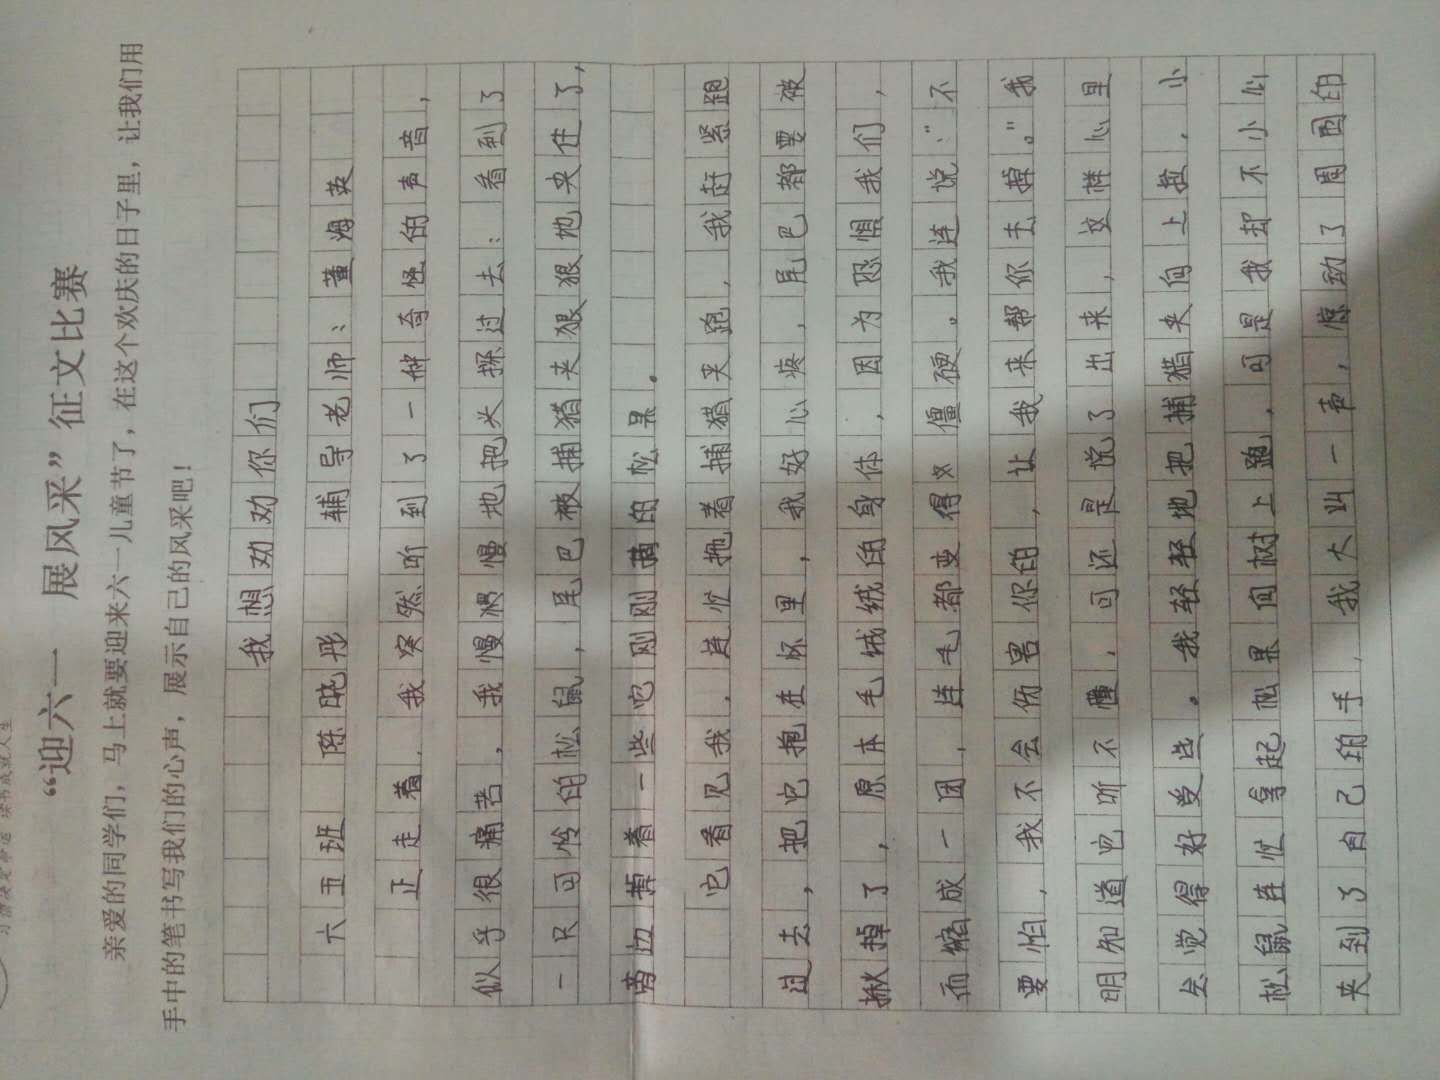 “迎六一 展风采”征文比赛
亲爱的同学们，马上就要迎来六一儿童节了，在这个欢庆的日子里，让我们用
手中的笔书写我们的心声，展示自己的风采吧！
我想劝劝你们
六五班 陈晓彤 辅导老师：董海英
正走着，我突然听到了一种奇怪的声音，
似乎很痛苦，我慢慢地把头探过去：看到了
一只可怜的松鼠，尾巴被捕猎夹狠狠地夹住了，
旁边掉着一些它刚刚摘的松果。
它看见我，连忙拖着捕猎夹跑，我赶紧跑
过去，把它抱在怀里，我好心疼，尾巴都要被
揪掉了，原本毛绒绒的身体，因为恐惧我们，
而缩成一团，连毛都变得僵硬。我连说：“不
要怕，我不会伤害你的，让我来帮你去掉。”我
明知道它听不懂，可还是说了出来，这样心里
会觉得好受些。我轻轻地把捕猎夹向上拉，小
松鼠连忙拿起松果向树上跑，可是我却不小心
夹到了自己的手，我大叫一声，惊动了周围的